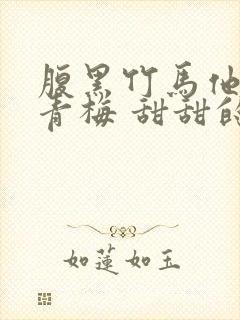 腹黑竹馬他
青梅 甜甜的
如蓮如玉